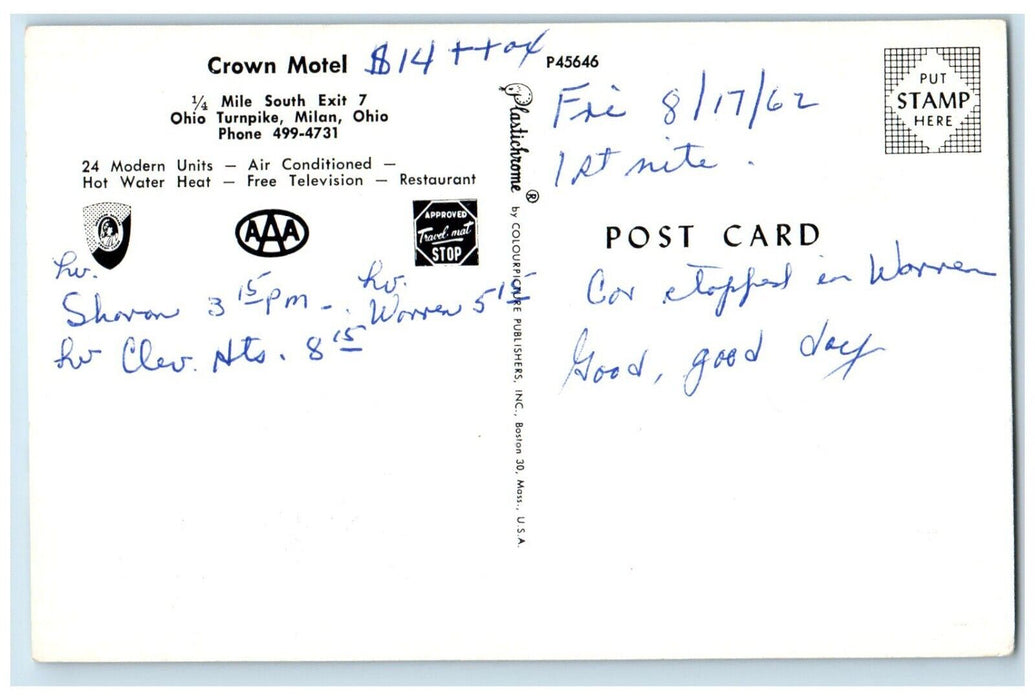 Crown Motel $14 + tax
¼ Mile South Exit 7
Ohio Turnpike, Milan, Ohio
Phone 499-4731
24 Modern Units — Air Conditioned —
Hot Water Heat — Free Television — Restaurant
AAA
APPROVED
Travel-mat
STOP
lv. lv.
Sharon 3 15 pm - . Warren 5 15
lv Clev. Hts. 8 15
P45646
Plastichrome ® by COLOURPICTURE PUBLISHERS, INC., Boston 30, Mass., U.S.A.
PUT
STAMP
HERE
Fri 8/17/62
1st nite .
POST CARD
Car stopped in Warren
Good, good day